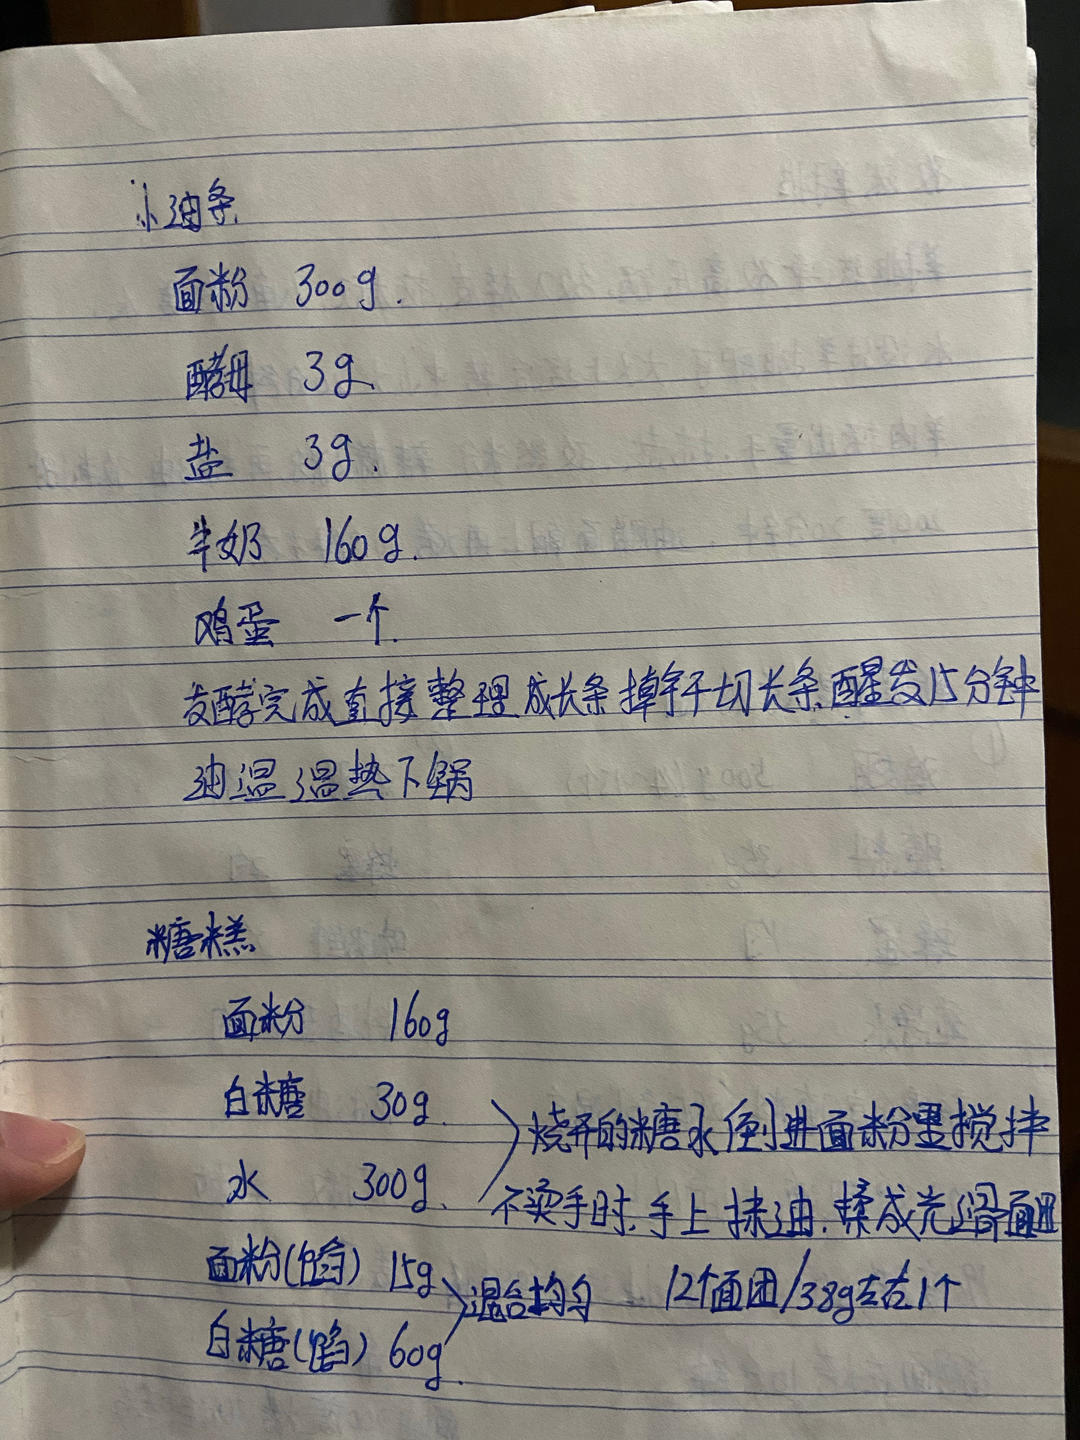 小油条
面粉 300g.
酵母 3g
盐 3g.
牛奶 160g.
鸡蛋 一个.
发酵完成直接整理成长条擀平切长条醒发15分钟
油温温热下锅
糖糕
面粉 160g
白糖 30g.
水 300g.
烧开的糖水倒进面粉里搅拌
不烫手时.手上抹油.揉成光滑面团
面粉(馅) 15g
白糖(馅) 60g.
混合均匀 12个面团/38g左右1个